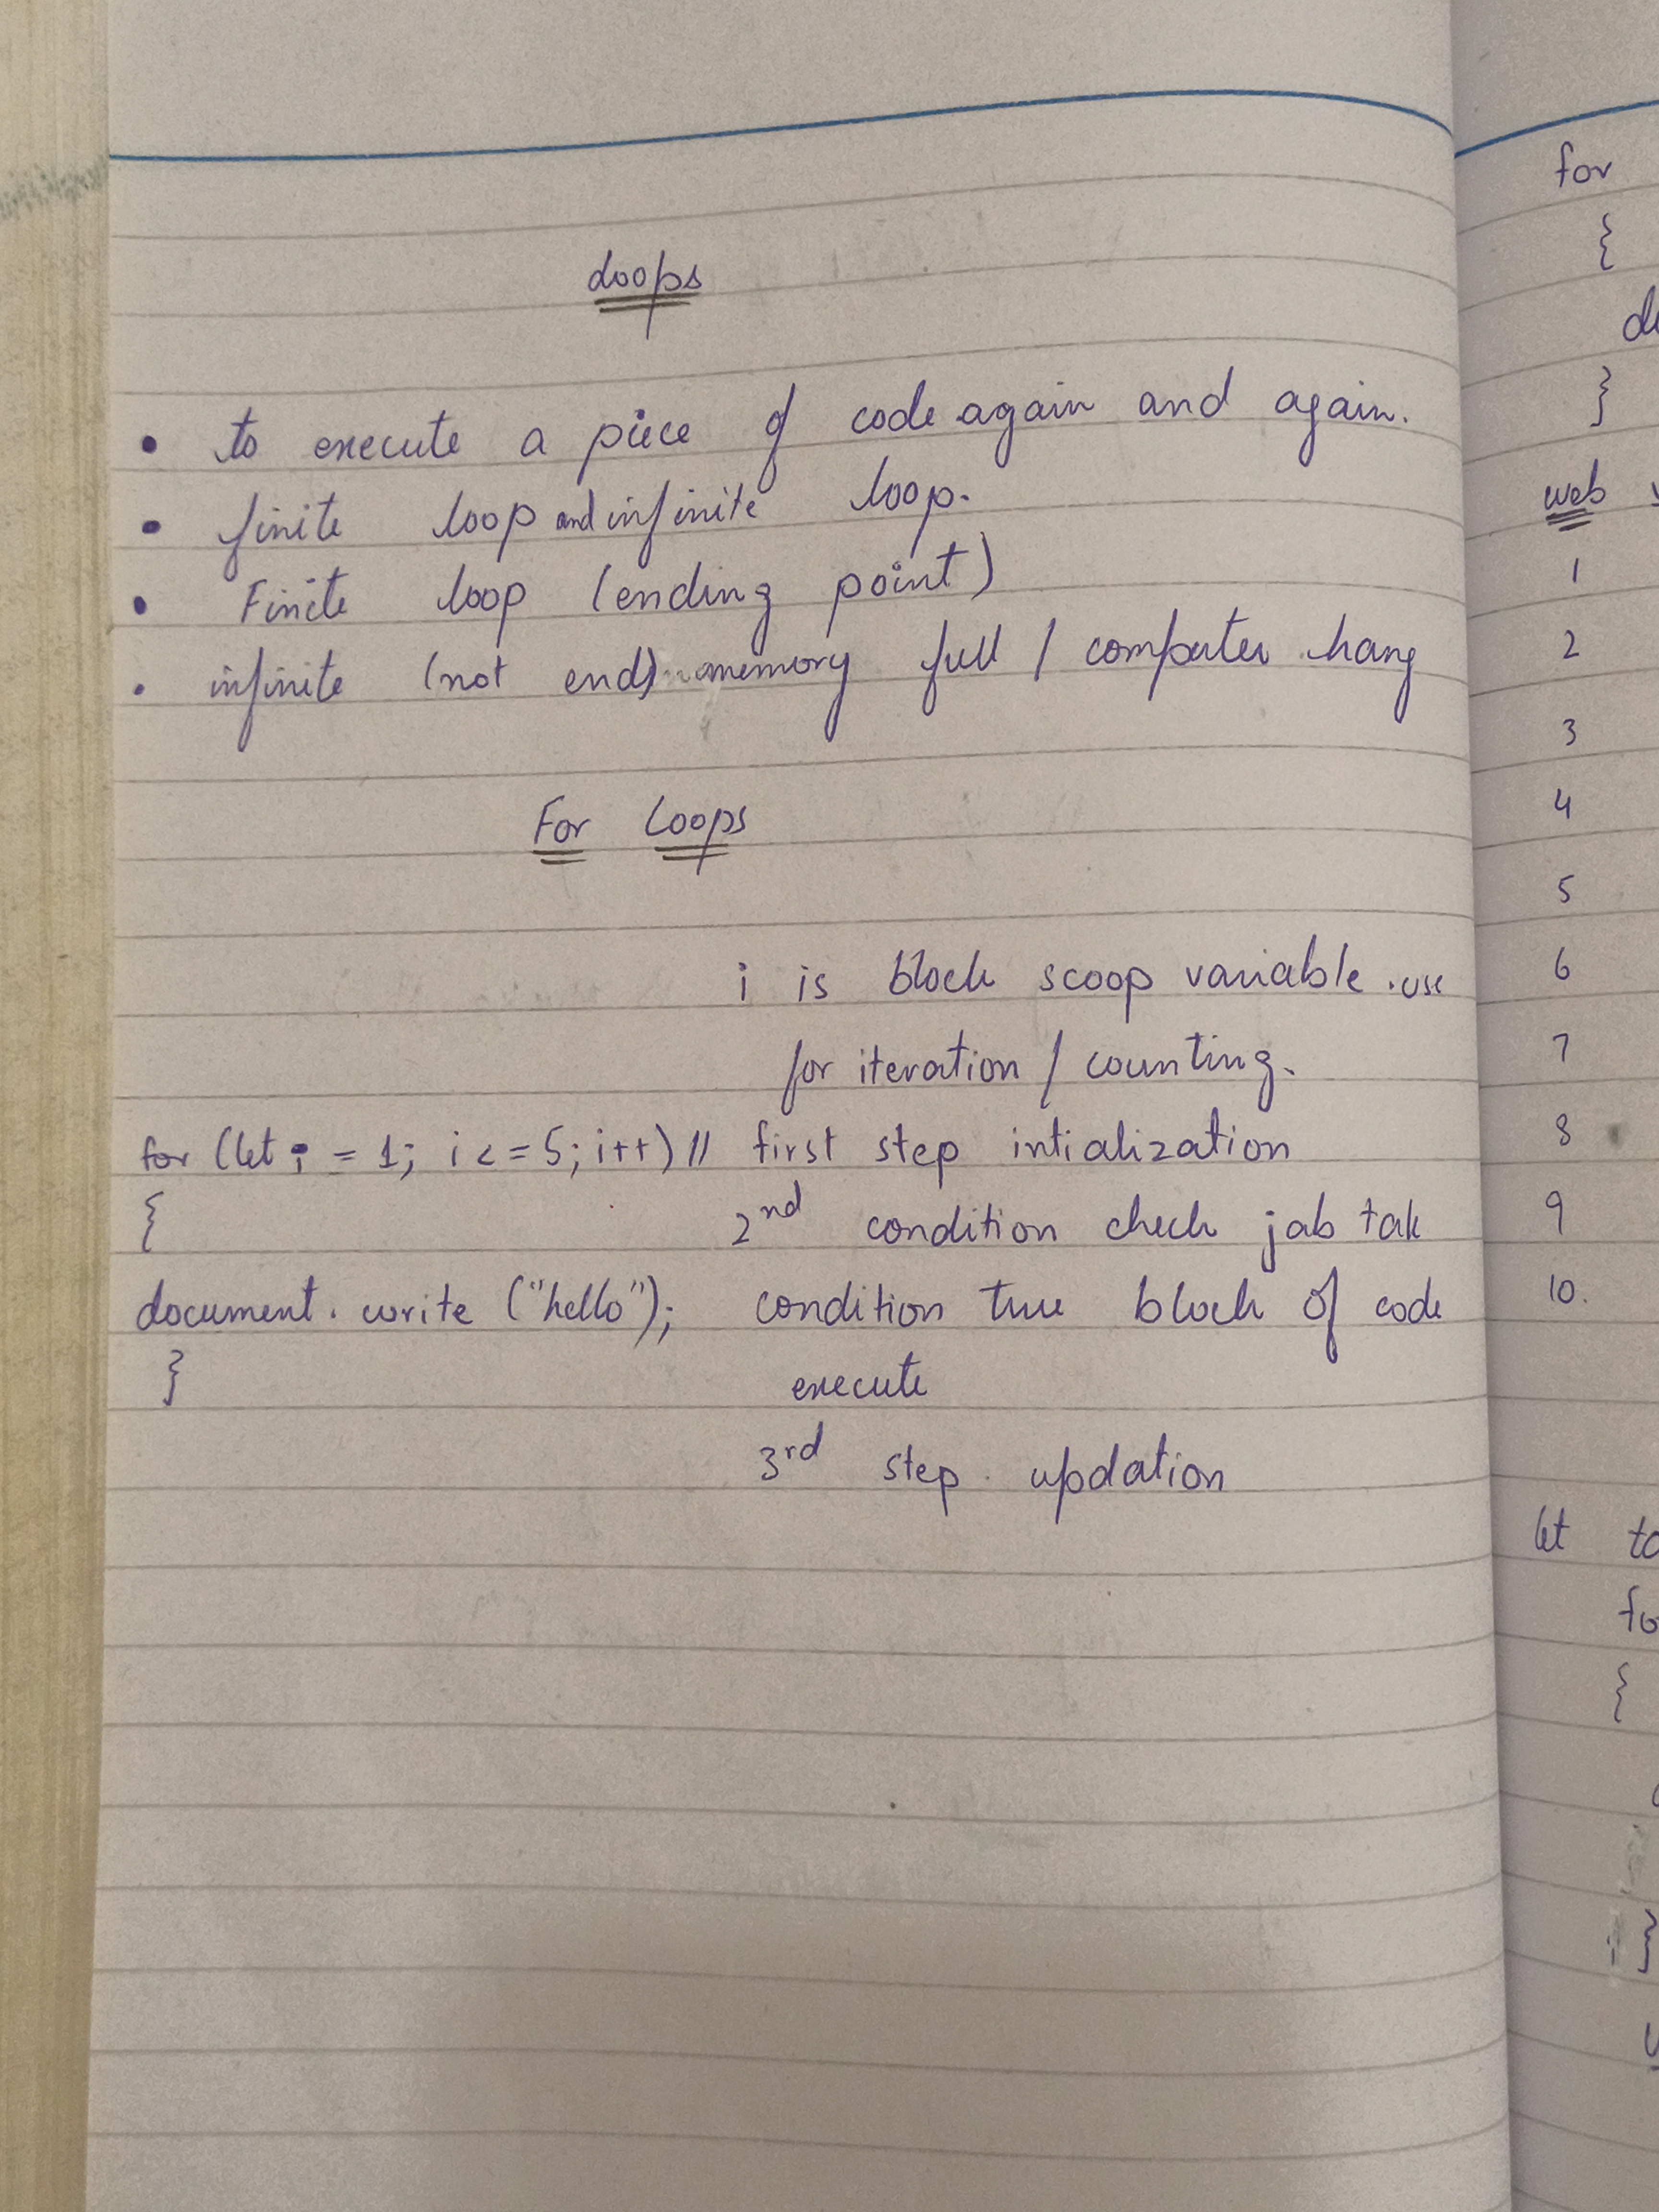 Loops
• to execute a piece of code again and again.
• finite loop and infinite loop.
• Finite loop (ending point)
• infinite (not end) memory full / computer hang
For Loops
i is block scoop variable . use
for iteration / counting.
for (let i = 1; i <= 5; i++) // first step intialization
{ 2nd condition check jab tak
document. write ("hello"); condition true block of code
} execute
3rd step updation
for
{
}
web
1
2
3
4
5
6
7
8
9
10.
let
{
}